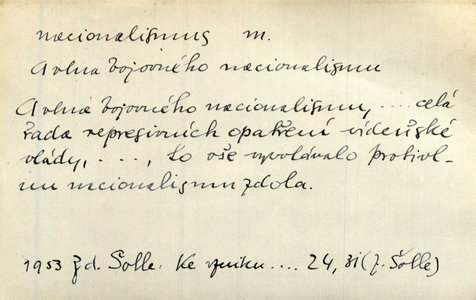 nacionalismus m.
A vlna bojovného nacionalismu
A vlna bojovného nacionalismu, .... celá
řada represivních opatření vídeňské
vlády, . . . ., to vše vyvolávalo protivl-
nu nacionalismu zdola.
1953 Zd. Šolle: Ke vzniku .... 24, 31 (Z. Šolle)